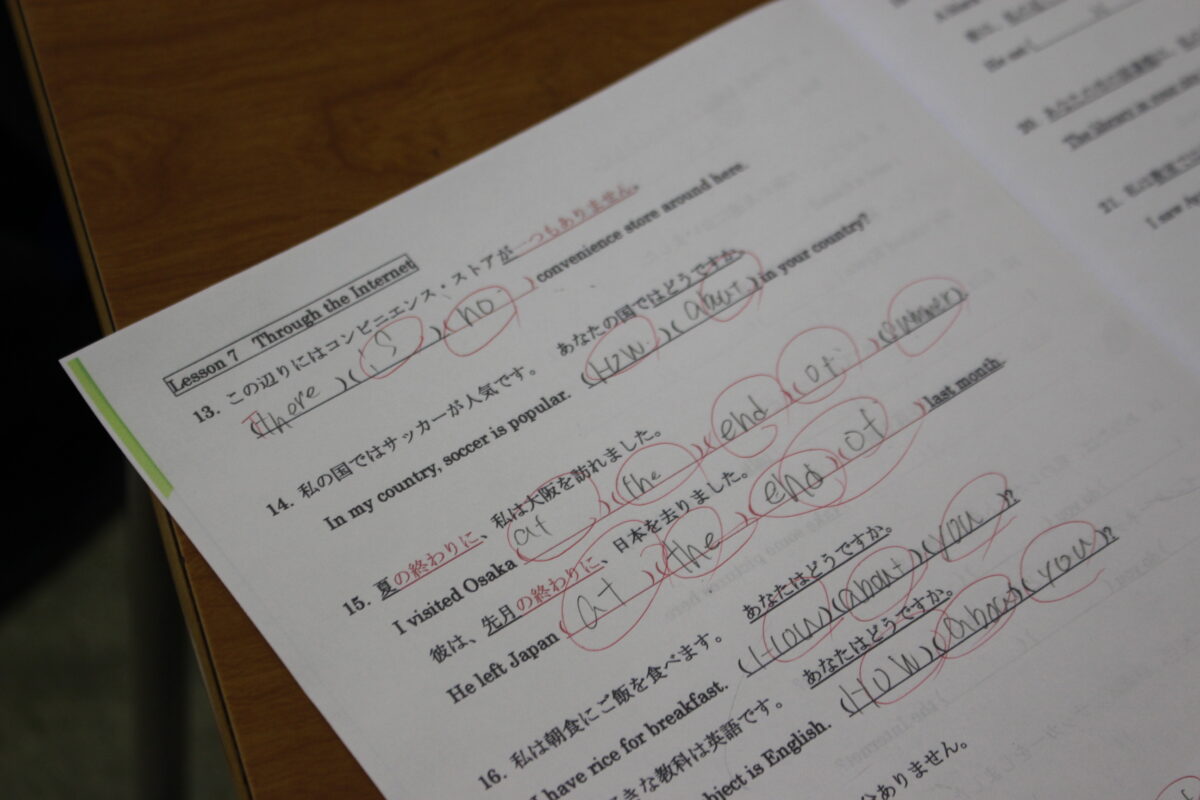 Lesson 7 Through the Internet
13. この辺りにはコンビニエンス・ストアが一つもありません。
(there)(is)(no) convenience store around here.
14. 私の国ではサッカーが人気です。 あなたの国ではどうですか。
In my country, soccer is popular. (How)(about) in your country?
15. 夏の終わりに、私は大阪を訪れました。
I visited Osaka (at)(the)(end)(of)(summer).
彼は、先月の終わりに、日本を去りました。
He left Japan (at)(the)(end)(of) last month.
16. 私は朝食にご飯を食べます。 あなたはどうですか。
I have rice for breakfast. (How)(about)(you)?
きな教科は英語です。 あなたはどうですか。
bject is English. (How)(about)(you)?
ありません。
20.
The library in your
21.
I saw